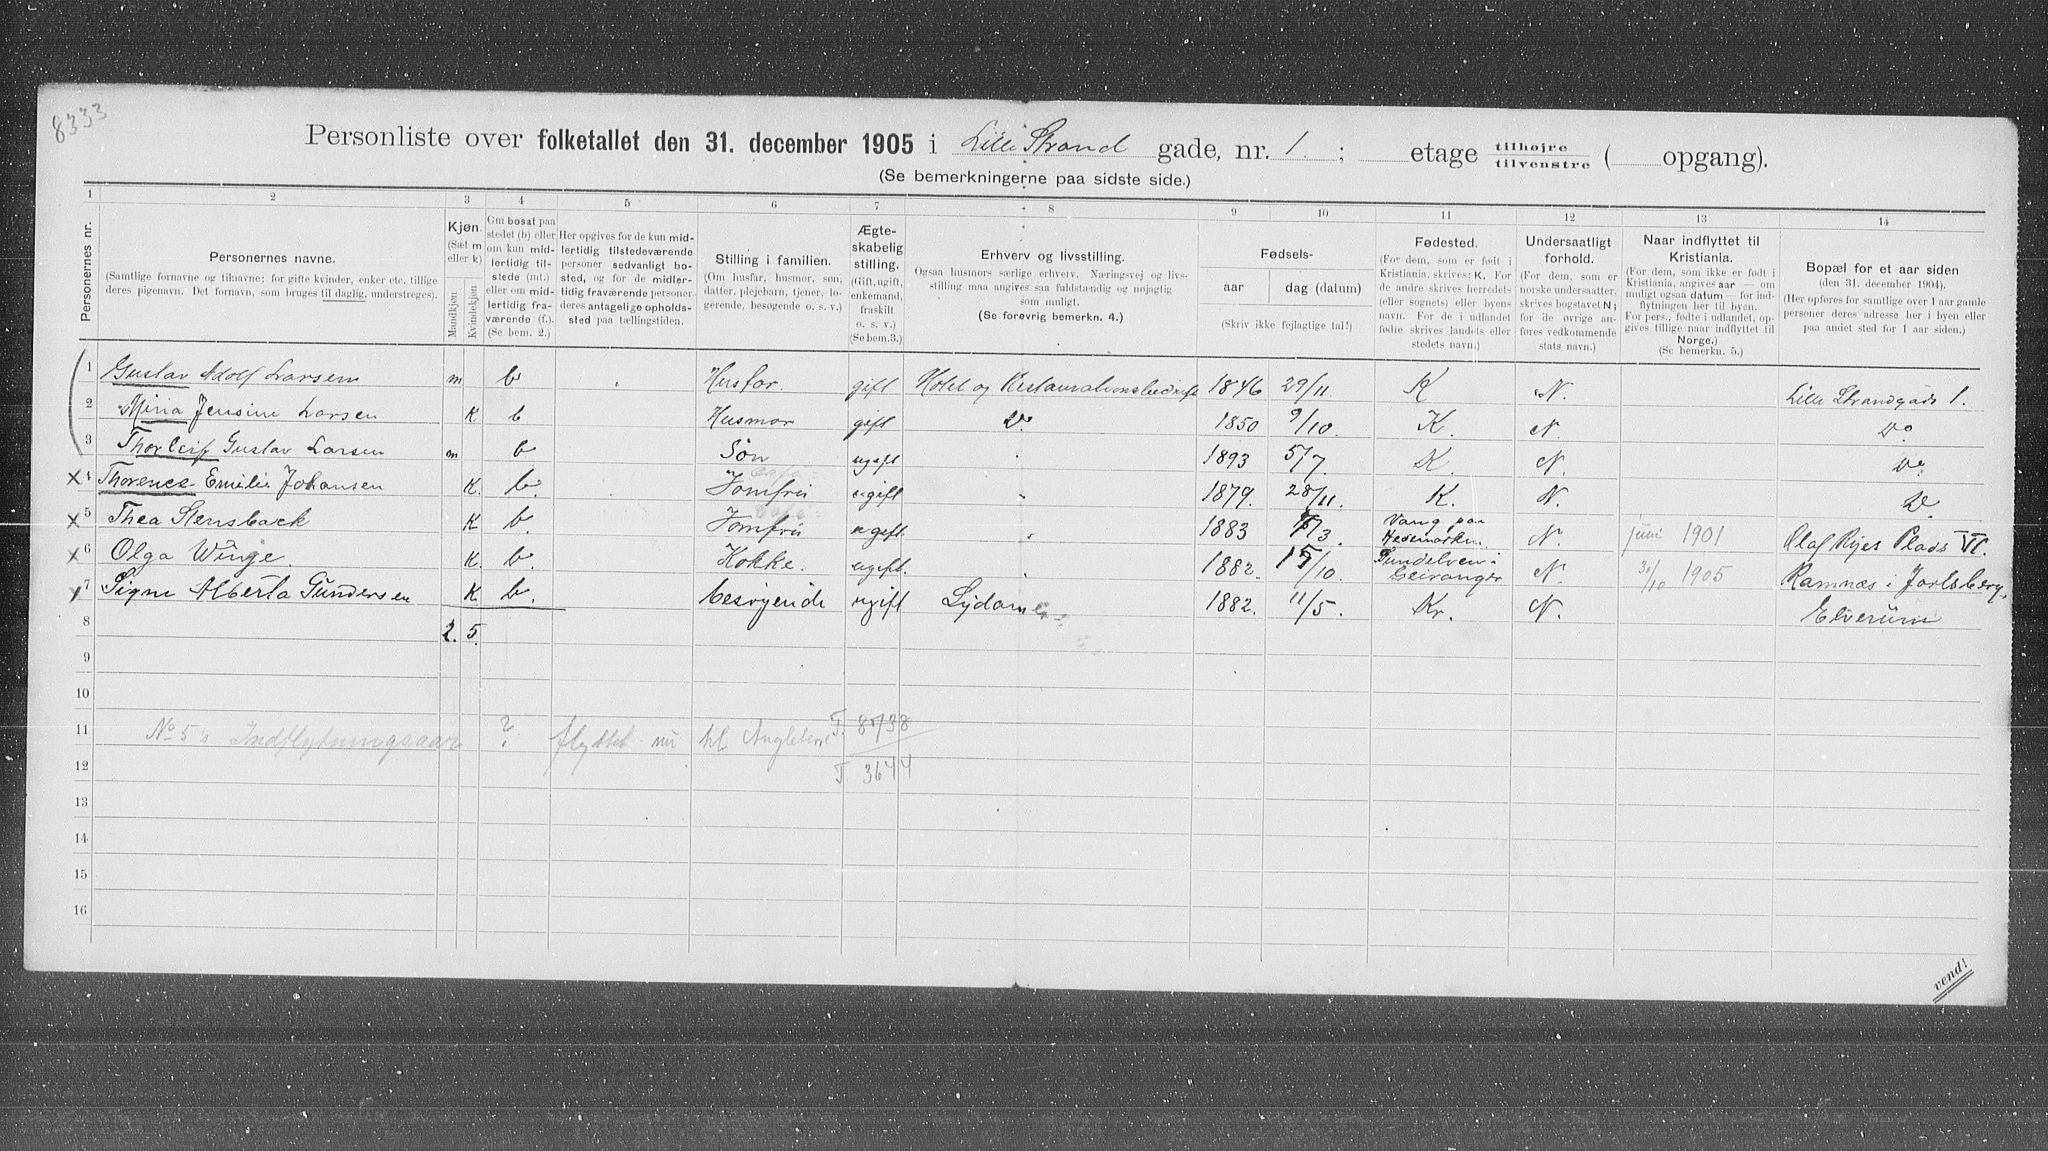 8333
Personliste over folketallet den 31. december 1905 i Lille Strand gade, nr. 1. ; etage tilhøjre tilvenstre ( opgang).
(Se bemerkningerne paa sidste side.)
1 2 3 4 5 6 7 8 9 10 11 12 13 14
Personernes nr.
Personernes navne.
(Samtlige fornavne og tilnavne; for gifte kvinder, enker etc. tillige
deres pigenavn. Det fornavn, som bruges til daglig, understreges).
Kjøn.
(Sæt m
eller k)
Mandkjøn
Kvindekjøn
Om bosat paa
stedet (b) eller
om kun mid-
lertidig til-
stede (mt.)
eller om mid-
lertidig fra-
værende (f.).
(Se bem. 2.)
Her opgives for de kun mid-
lertidig tilstedeværende
personer sedvanligt bo-
sted, og for de midler-
tidig fraværende personer
deres antagelige opholds-
sted paa tællingstiden.
Stilling i familien.
(Om husfar, husmor, søn,
datter, plejebarn, tjener, lo-
gerende, besøgende o. s. v.)
Ægte-
skabelig
stilling.
(Gift, ugift,
enkemand,
fraskilt
o. s. v.)
(Se bem.3.)
Erhverv og livsstilling.
Ogsaa husmors særlige erhverv. Næringsvej og livs-
stilling maa angives saa fuldstændig og nøjagtig
som muligt.
(Se forøvrig bemerkn. 4.)
Fødsels-
aar dag (datum)
(Skriv ikke fejlagtige tal!)
Fødested.
(For dem, som er født i
Kristiania, skrives: K. For
de andre skrives herredets
(eller sognets) eller byens
navn. For de i udlandet
fødte skrives landets eller
stedets navn.)
Undersaatligt
forhold.
(For dem, som er
norske undersaatter,
skrives bogstavet N;
for de øvrige an-
føres vedkommende
stats navn.)
Naar indflyttet til
Kristiania.
(For dem, som ikke er født i
Kristiania, angives aar — om
muligt ogsaa datum — for ind-
flytningen her til byen.
For pers., fødte i udlandet, op-
gives tillige naar indflyttet til
Norge.)
(Se bemerkn. 5.)
Bopæl for et aar siden
(den 31. december 1904).
(Her opføres for samtlige over 1 aar gamle
personer deres adresse her i byen eller
paa andet sted for 1 aar siden.)
1 Gustav Adolf Larsen m b Husfar. gift Hotel og Restaurationsbedrift 1846 29/11. K N. Lille Strandgade 1.
2 Mina Jensine Larsen K b Husmor gift Do 1850 9/10. K. N. Do
3 Thorleif Gustav Larsen m b Søn ugift 1893 5/7 K. N. Do
x 4 Thorence Emilie Johansen K. b. Jomfru ugift 1879. 28/11. K. N. Do
x 5 Thea Stensback K b. Jomfru ugift. 1883 /3. Vang paa Hedemarken. N. juni 1901 Olaf Ryes Plads VI.
x 6 Olga Winge. K. b. Kokke. ugift. 1882. 15/10. i Geiranger N. 30/10 1905 Ramnæs i Jarlsberg.
x 7 Signe Alberta Gundersen K. b. besøgende ugift Sydame 1882. 11/5. Kr. N. Elverum
8 2. 5.
9
10
11 No 5's Indflytningsaar ? flyttet nu til Angleterre T. 8738
12 T. 3644
13
14
15
16
vend!